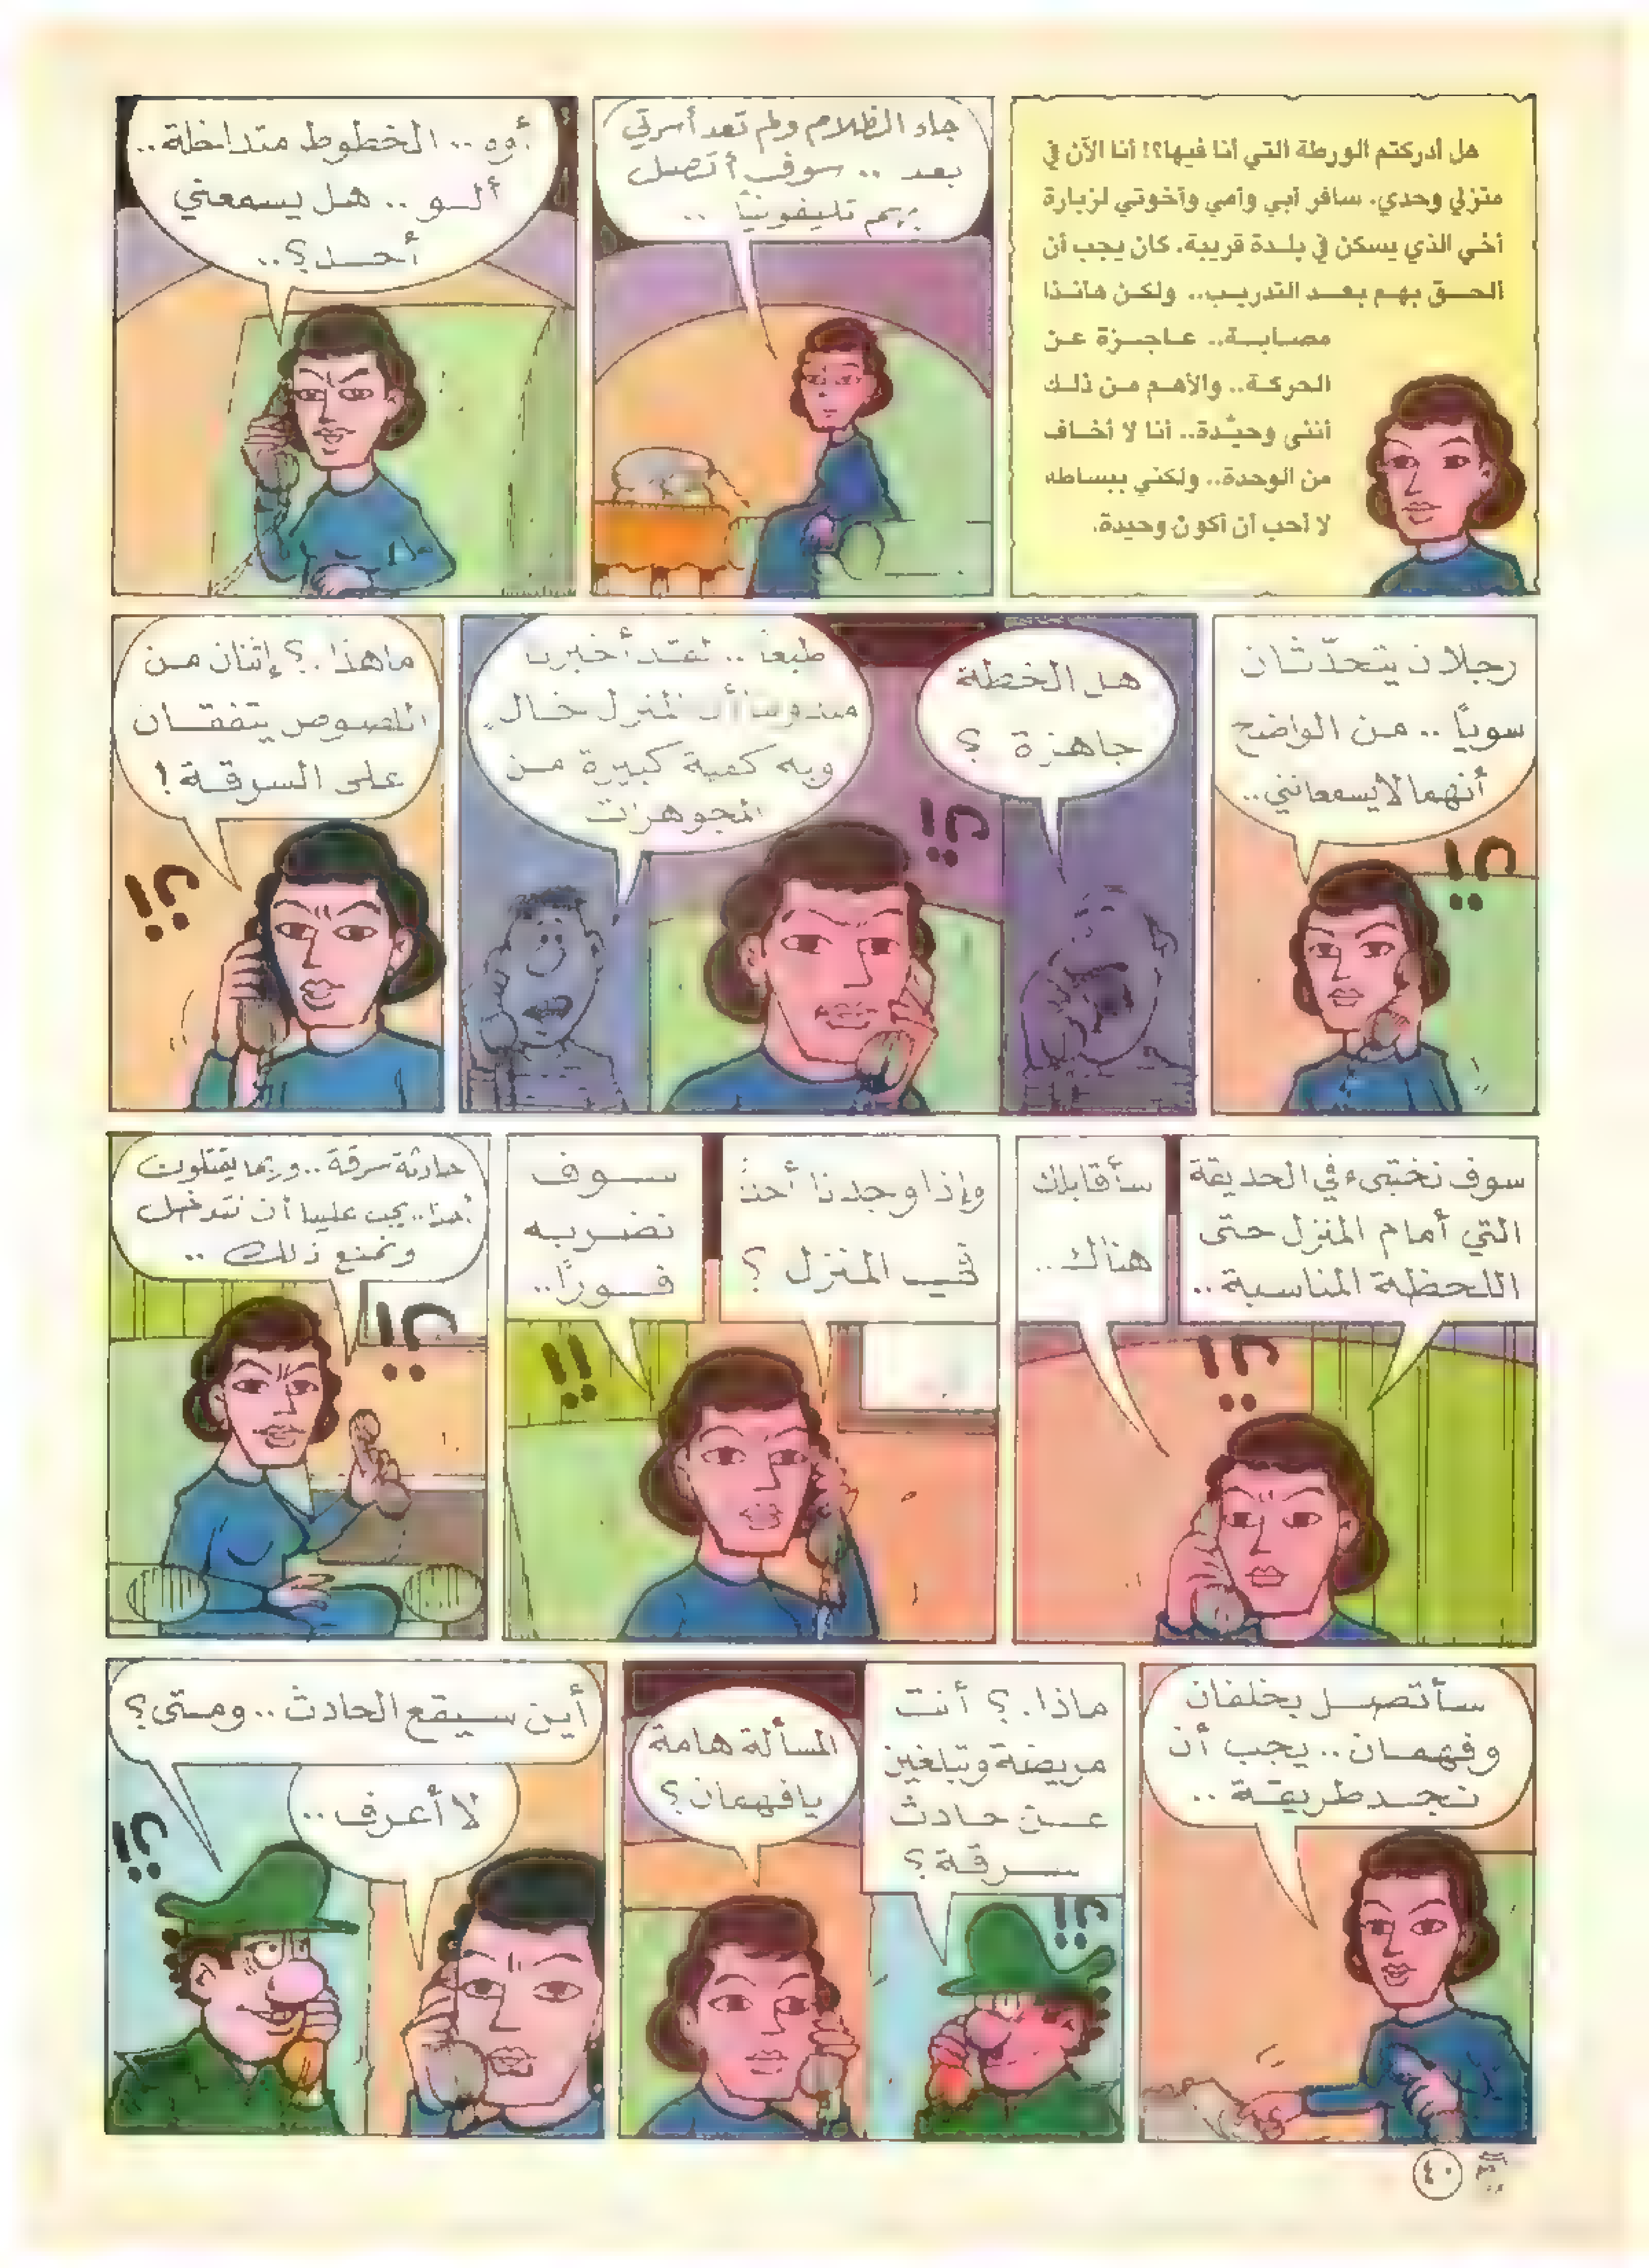 هل أدركتم الورطة التي أنا فيها؟! أنا الآن في
منزلي وحدي. سافر أبي وأمي وأخوتي لزيارة
أخي الذي يسكن في بلدة قريبة. كان يجب أن
ألحق بهم بعد التدريب.. ولكن هانذا
مصابة.. عاجزة عن
الحركة.. والأهم من ذلك
أنني وحيدة.. أنا لا أخاف
من الوحدة.. ولكني ببساطه
لا أحب أن أكون وحيدة.
جاء الظلام ولم تعد أسرتي
بعد .. سوف أتصل
بهم تليفونيًا ..
أوه .. الخطوط متداخلة..
ألـو .. هل يسمعني
أحد؟..
رجلان يتحدّثان
سويًا .. من الواضح
أنهما لا يسمعانني..
هل الخطة
جاهزة ؟
طبعًا .. لقد أخبرنا
مندوبنا أن المنزل خالٍ
وبه كمية كبيرة من
المجوهرات
ما هذا.؟ إثنان من
اللصوص يتفقان
على السرقة !
سوف نختبىء في الحديقة
التي أمام المنزل حتى
اللحظة المناسبة..
سأقابلك
هناك..
وإذا وجدنا أحدًا
في المنزل ؟
سوف
نضربه
فورًا..
حادثة سرقة .. وربما يقتلون
أحدًا.. يجب علينا أن نتدخل
ونمنع ذلك ..
سأتصل بخلفان
وفهمان .. يجب أن
نجد طريقة ..
ماذا.؟ أنت
مريضة وتبلغين
عن حادث
سرقة ؟
المسألة هامة
يا فهمان ؟
أين سيقع الحادث .. ومتى ؟
لا أعرف ..
٤٠